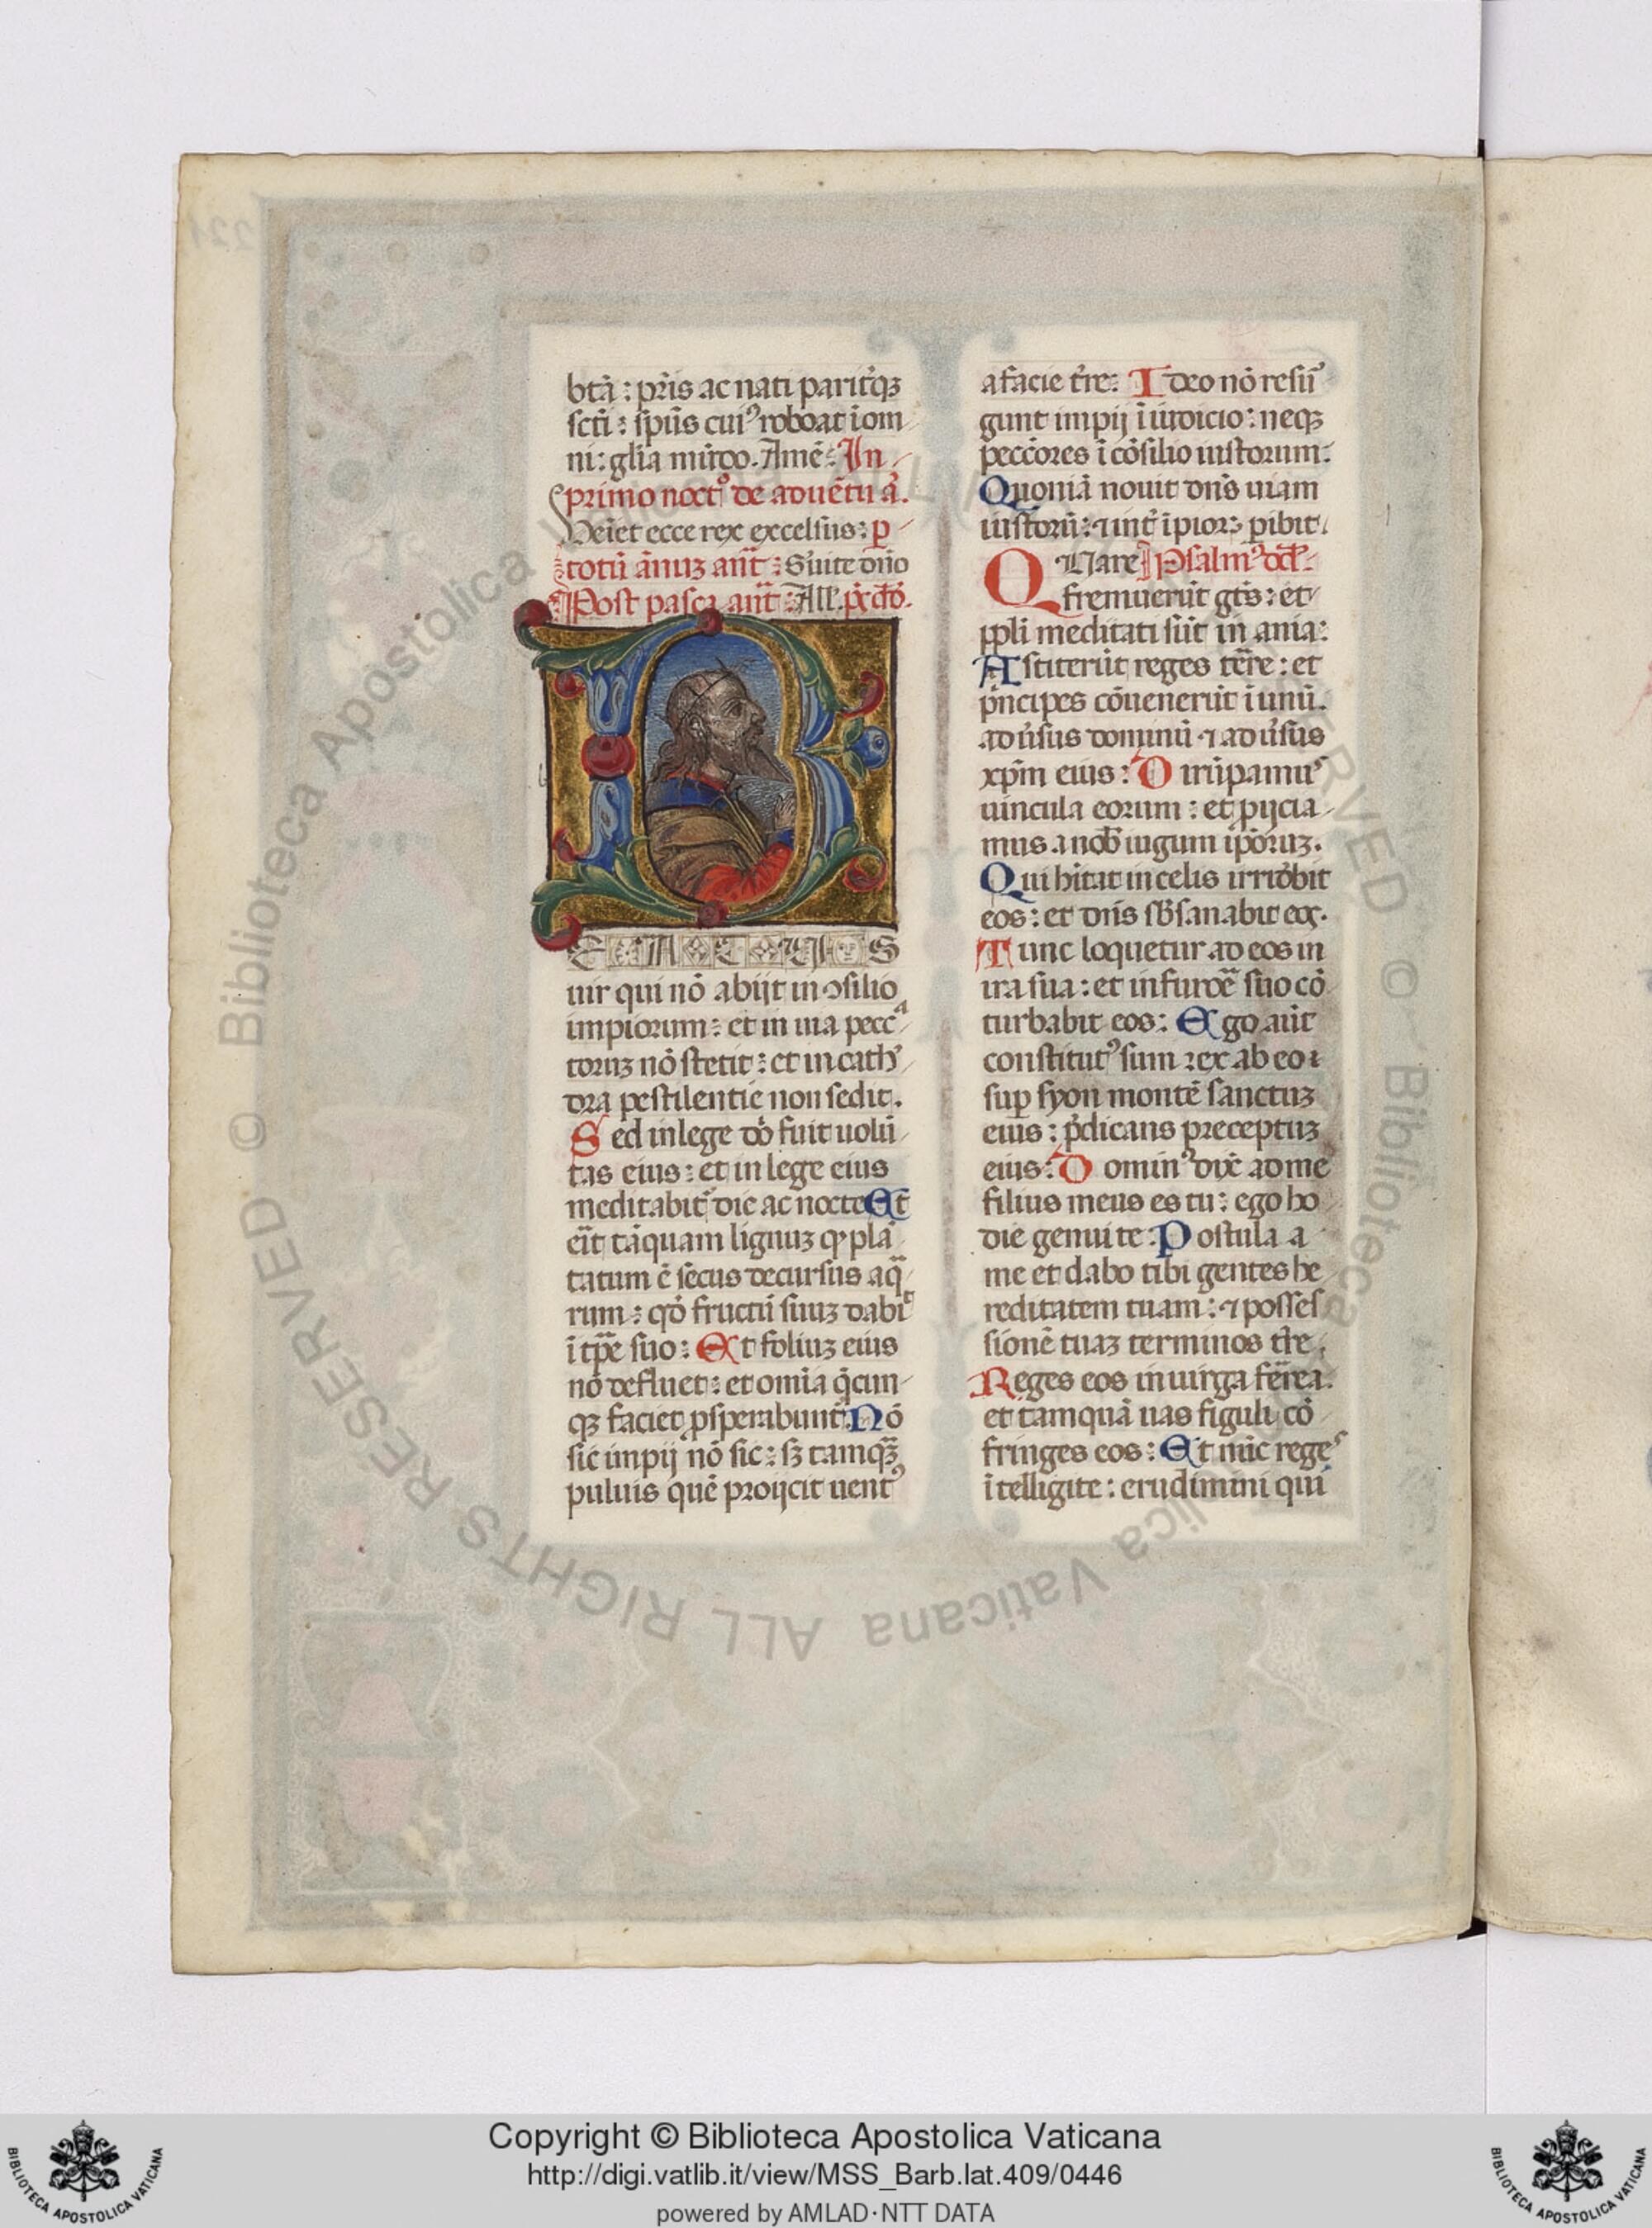 btā : pr̄is ac nati parit̉qꝫ
sctī : sp̄us cuiꝰ roboat ī om
ni : glīa mūdo. Amē : In
primo noctꝰ de aduētu ā.
Veīet ecce rex excelsus : ꝑ
totū ānuꝫ ant̄ : Suite dn̄o
Post pasca ant̄ : All̄. p̄ cd̄o.
B
EATUS
uir qui nō abijt in ↄsilio
impiorum : et in uia pecca
toruꝫ nō stetit : et in cath
dra pestilentie non sedit.
Sed in lege dō fuit uolū
tas eius : et in lege eius
meditabit̄ die ac nocte Et
eīt tāquam lignuꝫ qꝫ plā
tatum ē secus decursus aq̄
rum : qd̄ fructū suuꝫ dabit
ī tꝑe suo : Et foliuꝫ eius
nō defluet : et omīa q̄cun
qꝫ faciet ꝓsperabunt̄. Nō
sic impij nō sic : sꝫ tamqꝫ
puluis quē proijcit uentꝰ
a facie t̄re : Ideo nō resu
gunt impij ī iudicio : neqꝫ
peccōres ī cōsilio iustorum :
Quoniā nouit dn̄s uiam
iustorū : ⁊ int̄ īpioꝝ ꝑibit.
QUare Psalmꝰ dd̄.
fremuerūt gt̄s : et
ppl̄i meditati sūt in ania :
Astiterūt reges tēre : et
p̄ncipes cōuenerūt ī unū.
adūsus dominū ⁊ adūsus
xp̄m eius : Dirūpamus
uincula eorum : et ꝓijcia
mus a nob̄ iugum ip̄oruꝫ.
Qui hītat in celis irridebit
eos : et dn̄s sb̄sanabit eoꝝ.
Tunc loquetur ad eos in
ira sua : et in furoē suo cō
turbabit eos : Ego aūt
constitutꝰ sum rex ab eo ⁊
suꝑ syon montē sanctuꝫ
eius : p̄dicans preceptuꝫ
eius : Dominꝰ dix̄ ad me
filius meus es tu : ego ho
die genui te : Postula a
me et dabo tibi gentes he
reditatem tuam : ⁊ posses
sionē tuaꝫ terminos tr̄e
Reges eos in uirga fērea :
et tamquā uas figuli cō
fringes eos : Et nūc reges
ītelligite : erudimini qui
© Biblioteca Apostolica Vaticana ALL RIGHTS RESERVED
Copyright © Biblioteca Apostolica Vaticana
http://digi.vatlib.it/view/MSS_Barb.lat.409/0446
powered by AMLAD·NTT DATA
BIBLIOTECA APOSTOLICA VATICANA
BIBLIOTECA APOSTOLICA VATICANA